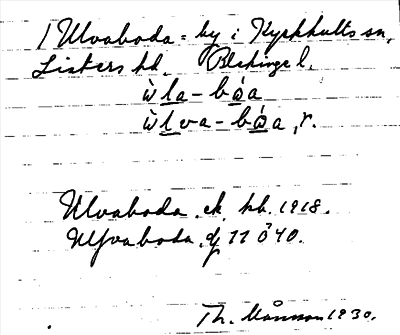 / Ulvaboda = by i Kyrkhults sn,
Listers hd. Blekinge l.
ùla - bǻa
ùlva - bǻa, r.
Ulvaboda, ek. kb. 1918.
Ulfvaboda,
Th. Månsson 1930.